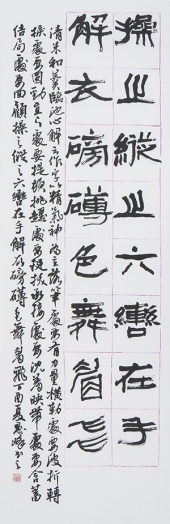 操之縱之六轡在手
解衣磅礴色舞眉飛
清朱和羹臨池心解云作字以精氣神為主落筆處要有力量橫勒處要波折轉
捩處要圓勁直下處要提頓挑趯處要挺拔承接處要沈著映帶處要含蓄
結局處要回顧操之縱之六轡在手解衣磅礴色舞眉飛丁酉夏書之